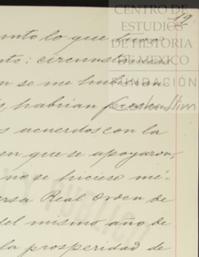 CENTRO DE
ESTUDIOS
DE HISTORIA
DE MÉXICO
FUNDACIÓN
19
lo que
circunstancias
se me
habrian
acuerdos con la
en que se apoyaron,
no se hiciese mé-
Real Orden de
del mismo año de
la prosperidad de